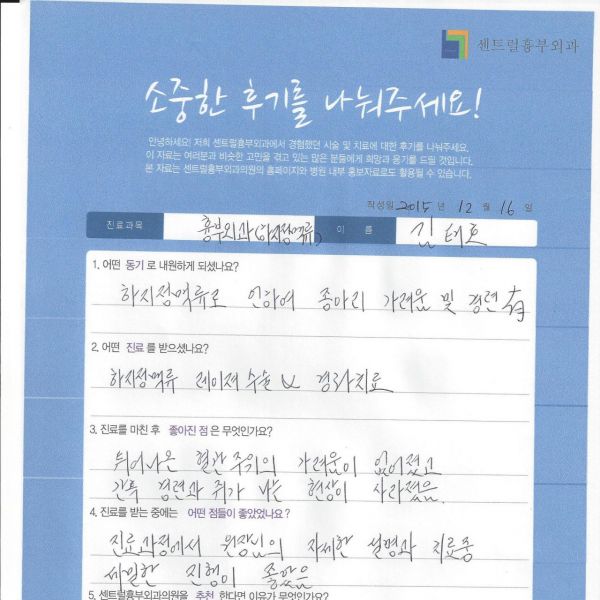 센트럴흉부외과
소중한 후기를 나눠주세요!
안녕하세요! 저희 센트럴흉부외과에서 경험했던 시술 및 치료에 대한 후기를 나눠주세요.
이 자료는 여러분과 비슷한 고민을 겪고 있는 많은 분들에게 희망과 용기를 드릴 것입니다.
본 자료는 센트럴흉부외과의원의 홈페이지와 병원 내부 홍보자료로도 활용될 수 있습니다.
작성일 2015 년 12 월 16 일
진료과목 흉부외과(하지정맥류) 이 름 김태호
1. 어떤 동기 로 내원하게 되셨나요?
하지정맥류로 인하여 종아리 가려움 및 경련 有
2. 어떤 진료 를 받으셨나요?
하지정맥류 레이져 수술 & 경화치료
3. 진료를 마친 후 좋아진 점 은 무엇인가요?
튀어나온 혈관 주위의 가려움이 없어졌고
간혹 경련과 쥐가 나는 현상이 사라졌음.
4. 진료를 받는 중에는 어떤 점들이 좋았었나요 ?
진료과정에서 원장님의 자세한 설명과 치료중
세밀한 진행이 좋았음
5. 센트럴흉부외과의원을 추천 한다면 이유가 무엇인가요?